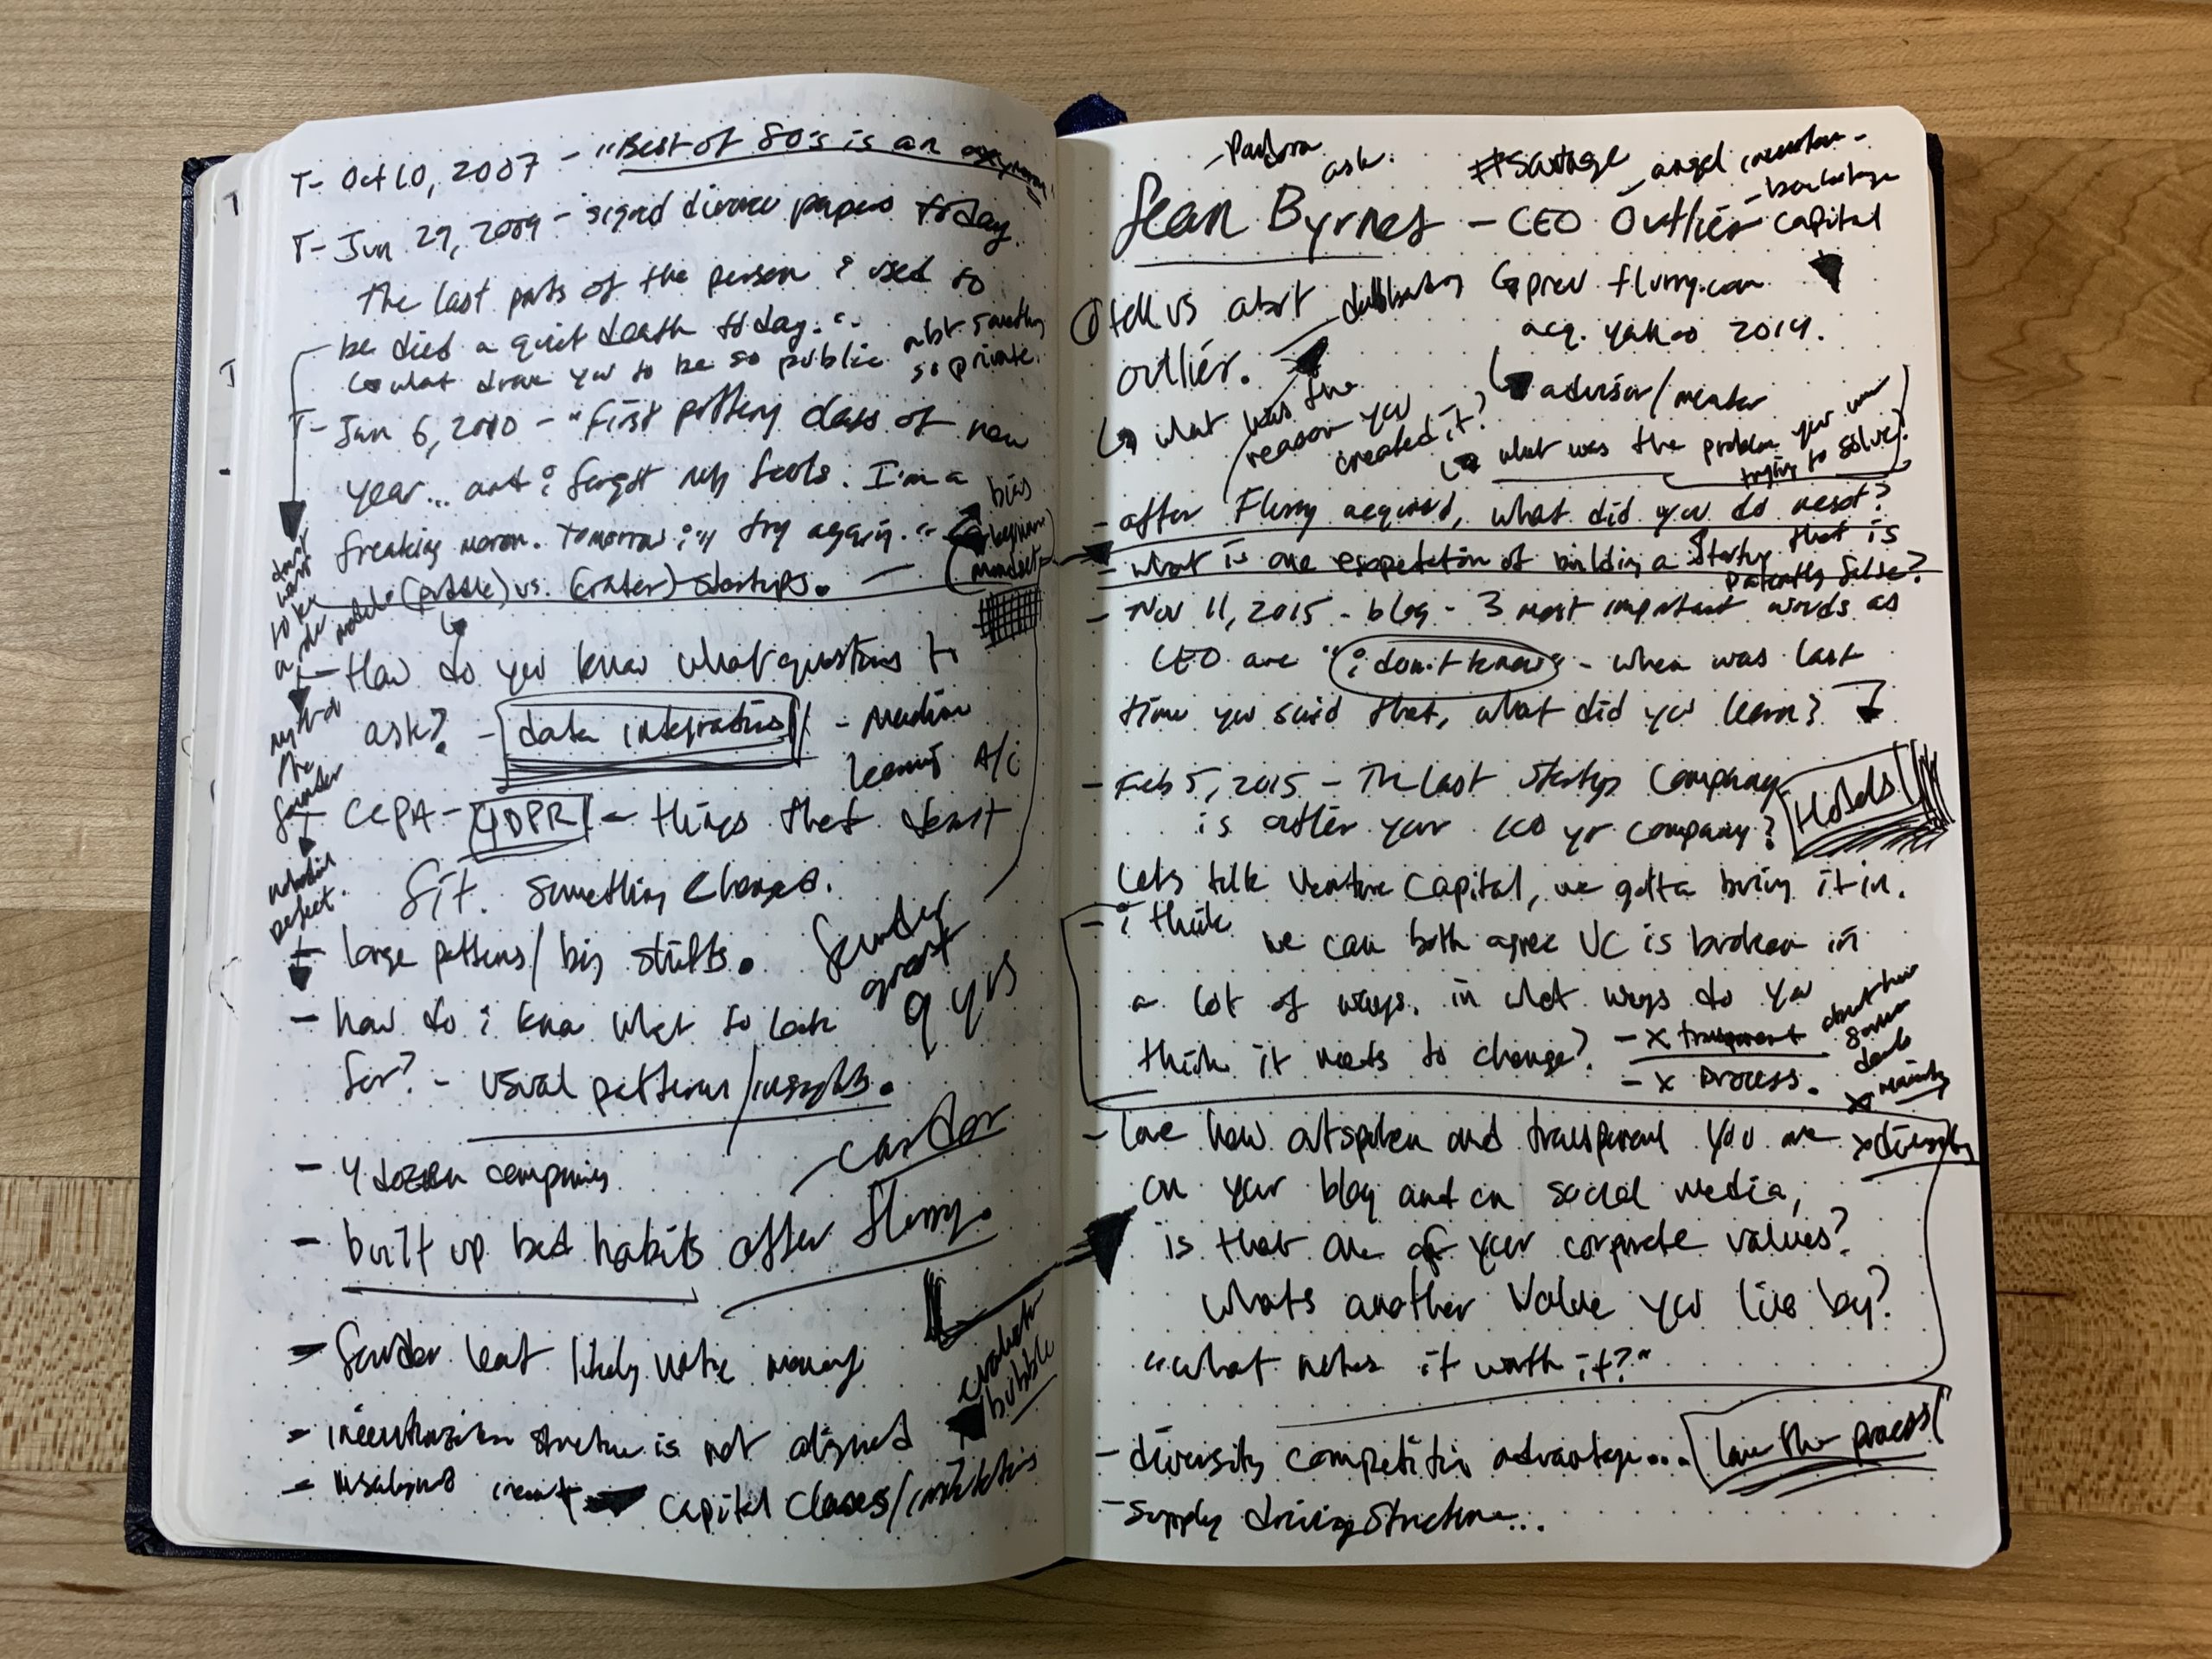 T- Oct 10, 2007 - "Best of 80's is an oxymoron"
T- Jun 29, 2009 - signed divorce papers today.
The last parts of the person i used to
be died a quiet death today."
what drove you to be so public abt something
so private.
T- Jan 6, 2010 - "First pottery class of new
year... and i forgot my tools. I'm a
freaking moron. Tomorrow i'll try again."
bias
beginners
mindset
model (pebble) vs. (crater) startups.
dont
want
to be
a
the
founder
nobodies
perfect.
- How do you know what questions to
ask? - data integration - Machine
learning A/i
- CCPA - GDPR - things that dont
fit. Something changes.
- large patterns / big shifts.
founder
great
9 yrs
- how do i know what to look
for? - visual patterns / insights.
- candor
- 4 dozen companies
- built up bad habits after flurry.
- founder least likely make money
evaluate
bubble
- structure is not aligned
- misaligned capital classes / institutions
- Pandora
ask.
#savage
- angel investor -
- backstage
capital
Sean Byrnes - CEO Outlier
① tell us abt
outlier.
prev flurry.com
acq. yahoo 2014.
advisor / mentor
what was the
reason you
created it?
what was the problem you were
trying to solve?
- after Flurry acquired, what did you do next?
- what is one expectation of building a startup that is
patently false?
- Nov 11, 2015 - blog - 3 most important words as
CEO are "i don't know" - when was last
time you said that, what did you learn?
- Feb 5, 2015 - The last startup company
is outlier your 100 yr company?
Hotels
Lets talk Venture Capital, we gotta bring it in.
- i think
we can both agree VC is broken in
a lot of ways. in what ways do you
think it needs to change?
- x transparent
about how
deals
- x process.
x diversity
- love how outspoken and transparent you are
on your blog and on social media,
is that one of your corporate values?
whats another value you live by?
"what makes it worth it?"
- diversity competitive advantage... love the process
- supply driving structure...